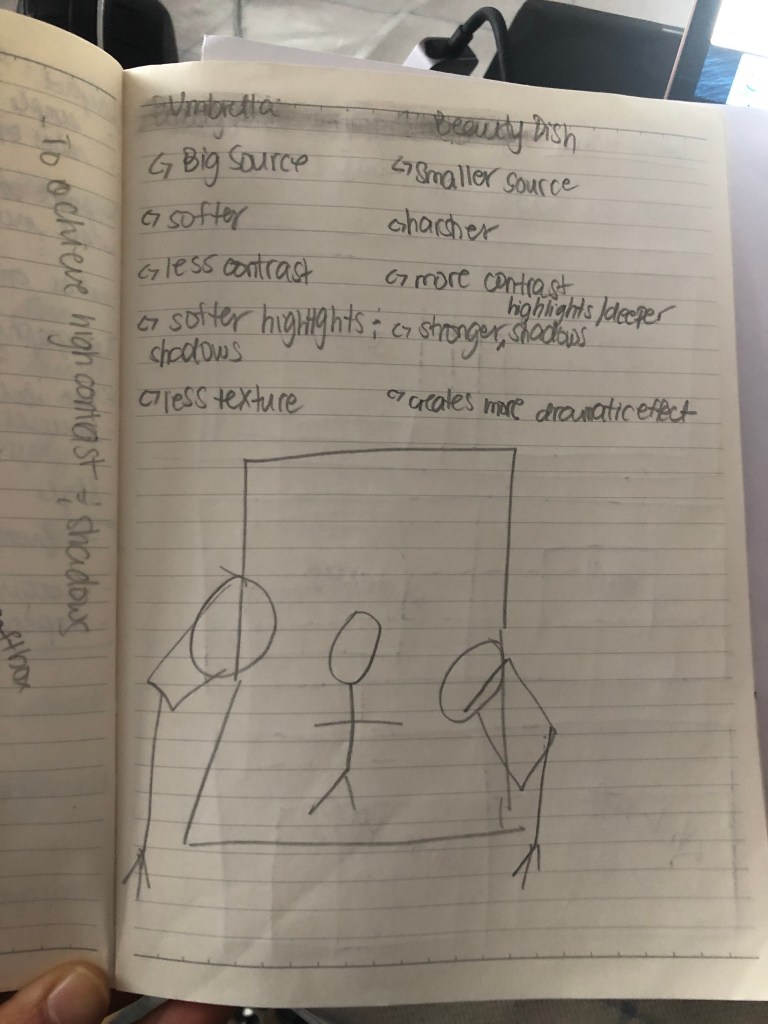 Umbrella
Beauty Dish
↳ Big Source
↳ smaller source
↳ softer
↳ harsher
↳ less contrast
↳ more contrast
↳ softer highlights +
shadows
↳ stronger highlights/deeper
shadows
↳ less texture
↳ creates more dramatic effect
. To achieve high contrast + shadows